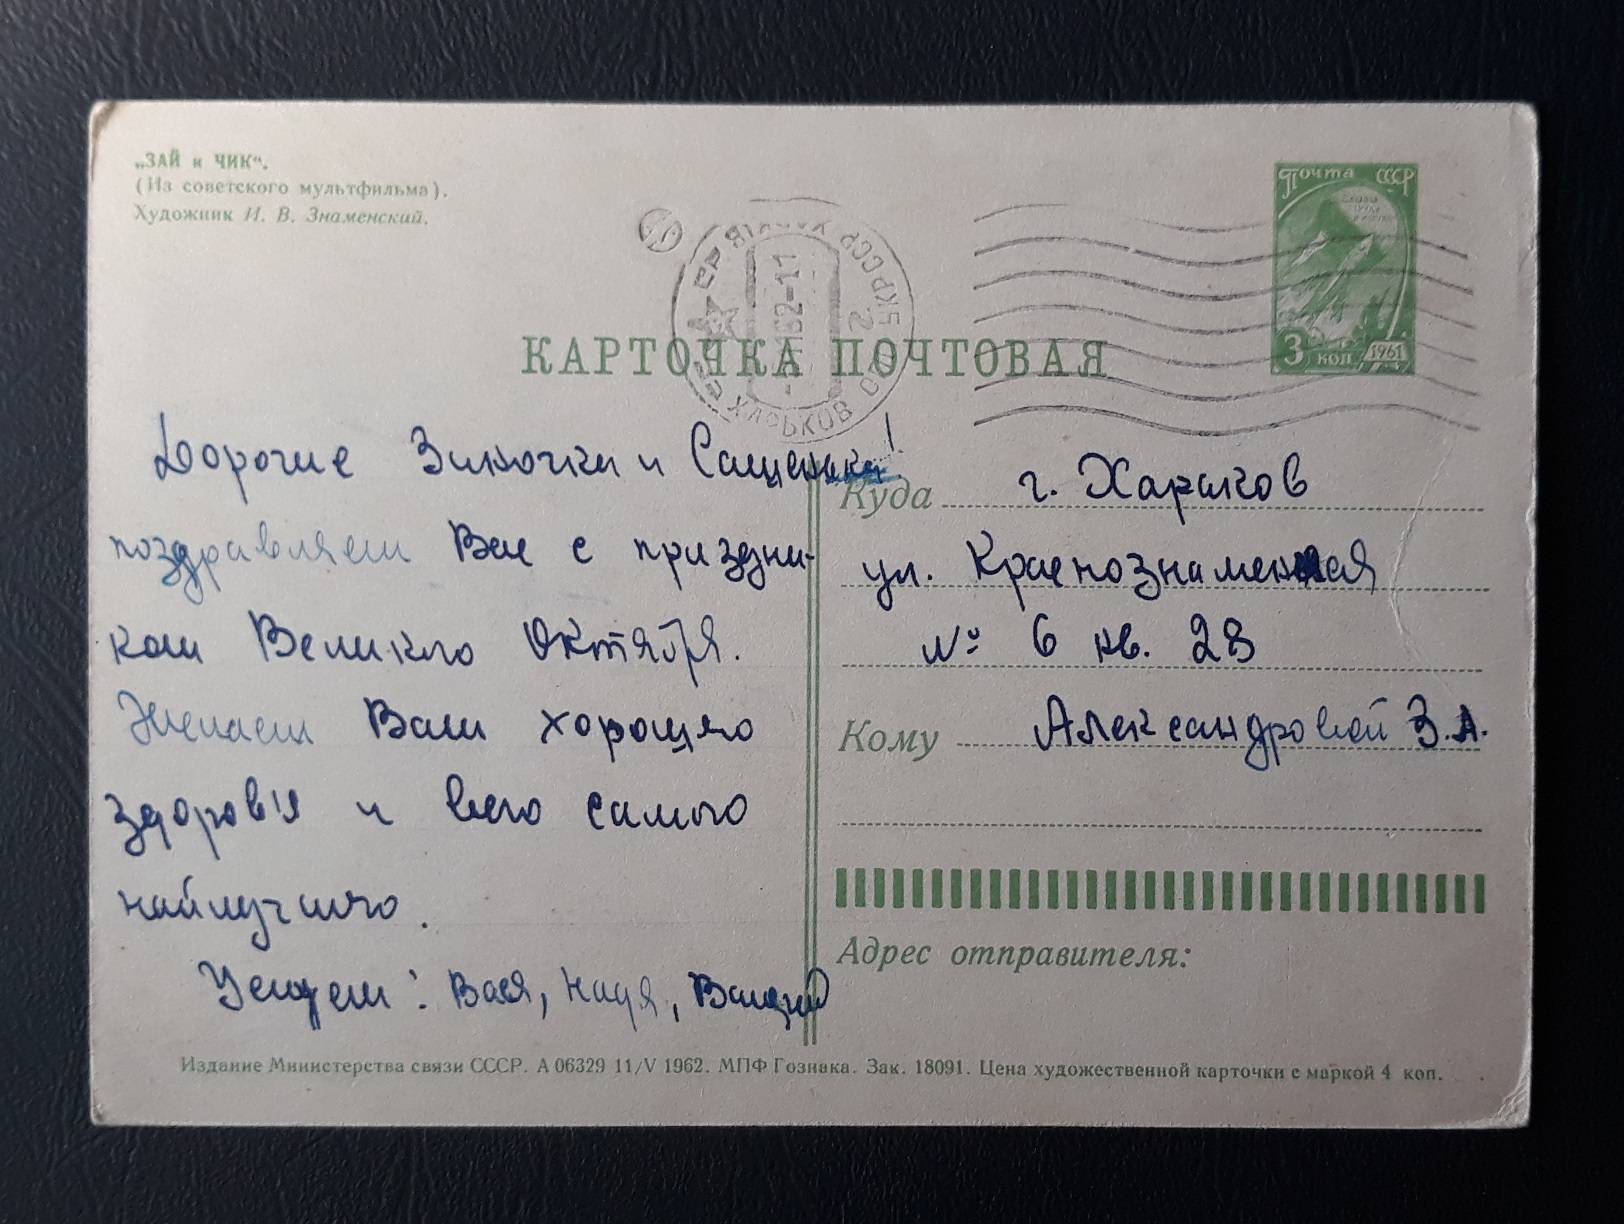 „ЗАЙ и ЧИК“.
(Из советского мультфильма).
Художник И. В. Знаменский.
Почта СССР
3 коп 1961
62-11
ХАРЬКОВ
УКР ССР
КАРТОЧКА ПОЧТОВАЯ
Дорогие Зиночка и Сашенька!
поздравляем Вас с праздни-
ком Великого Октября.
Желаем Вам хорошего
здоров'я и всего самого
найлучшего.
Целуем: Вася, Надя,
Куда г. Харьков
ул. Краснознаменная
№ 6 кв. 28
Кому Александровой З.А.
Адрес отправителя:
Издание Министерства связи СССР. А 06329 11/V 1962. МПФ Гознака. Зак. 18091. Цена художественной карточки с маркой 4 коп.